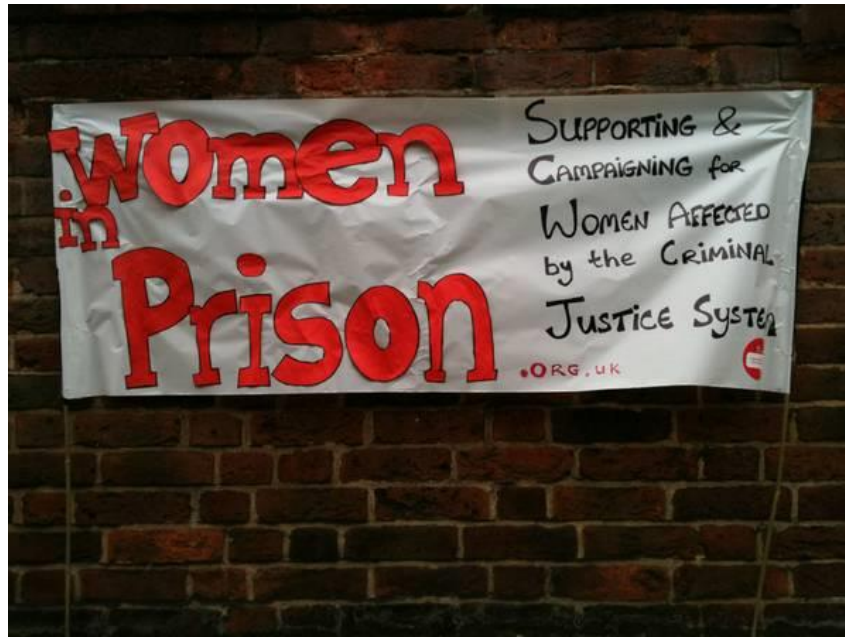 Women
in
Prison
SUPPORTING &
CAMPAIGNING for
WOMEN AFFECTED
by the CRIMINAL
JUSTICE SYSTEM
.ORG.UK